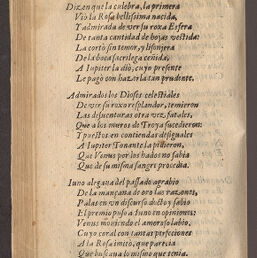 Dizen que la culebra, la primera
Viò la Rosa bellissima nacida,
Y admirada de ver su roxa Esfera
De tanta cantidad de hojas vestida:
La cortò sin temor, y lisonjera
De la boca sacrilega ceñida,
A Iupiter la diò, cuyo presente
Le pagò con hazerla tan prudente.
Admirados los Dioses celestiales
De ver su roxo resplandor, temieron
Las desuenturas otra vez fatales,
Que a los muros de Troya sucedieron:
Y puestos en contiendas desiguales
A Iupiter Tonante la pidieron,
Que Venus por los hados no sabia
Que de su misma sangre procedia.
Iuno alegaua del passado agrauio
De la mançana de oro las razones,
Palas en un discurso docto y sabio
El premio puso a Iuno en opiniones:
Venus mouiendo el amoroso labio,
Cuyo coral con tantas perfecciones
A la Rosa imitò, que parecia
Que buscaua lo mismo que tenia.